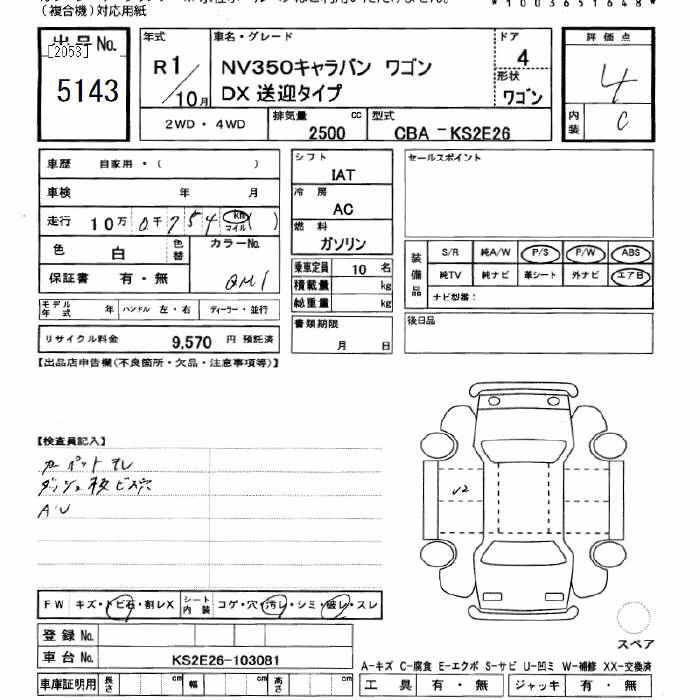 （複合機）対応用紙
*1003651648*
出品No.
[2053]
5143
年式
R1/10月
車名・グレード
NV350キャラバン ワゴン
DX 送迎タイプ
ドア
4
形状
ワゴン
評価点
4
内装
C
2WD・4WD
排気量
2500 cc
型式
CBA-KS2E26
車歴 自家用・（ ）
車検 年 月
走行 10万 0千 754 km マイル ( )
色 白 色替
カラーNo.
QM1
保証書 有・無
モデル年式 年 ハンドル 左・右 ディーラー・並行
リサイクル料金 9,570 円 預託済
シフト
IAT
冷房
AC
燃料
ガソリン
乗車定員 10 名
積載量 kg
総重量 kg
書類期限
月 日
セールスポイント
装備品
S/R 純A/W P/S P/W ABS
純TV 純ナビ 革シート 外ナビ エアB
ナビ型番：
後日品
【出品店申告欄(不良箇所・欠品・注意事項等)】
【検査員記入】
カーペットヨレ
ダッシュ板ビス穴
AU
U2
FW キズ・トビ石・割レX
シート内装 コゲ・穴・汚レ・シミ・破レ・スレ
登録No.
車台No. KS2E26-103081
車庫証明用 長さ cm 幅 cm 高さ cm
スペア
A-キズ C-腐食 E-エクボ S-サビ U-凹ミ W-補修 XX-交換済
工具 有・無 ジャッキ 有・無